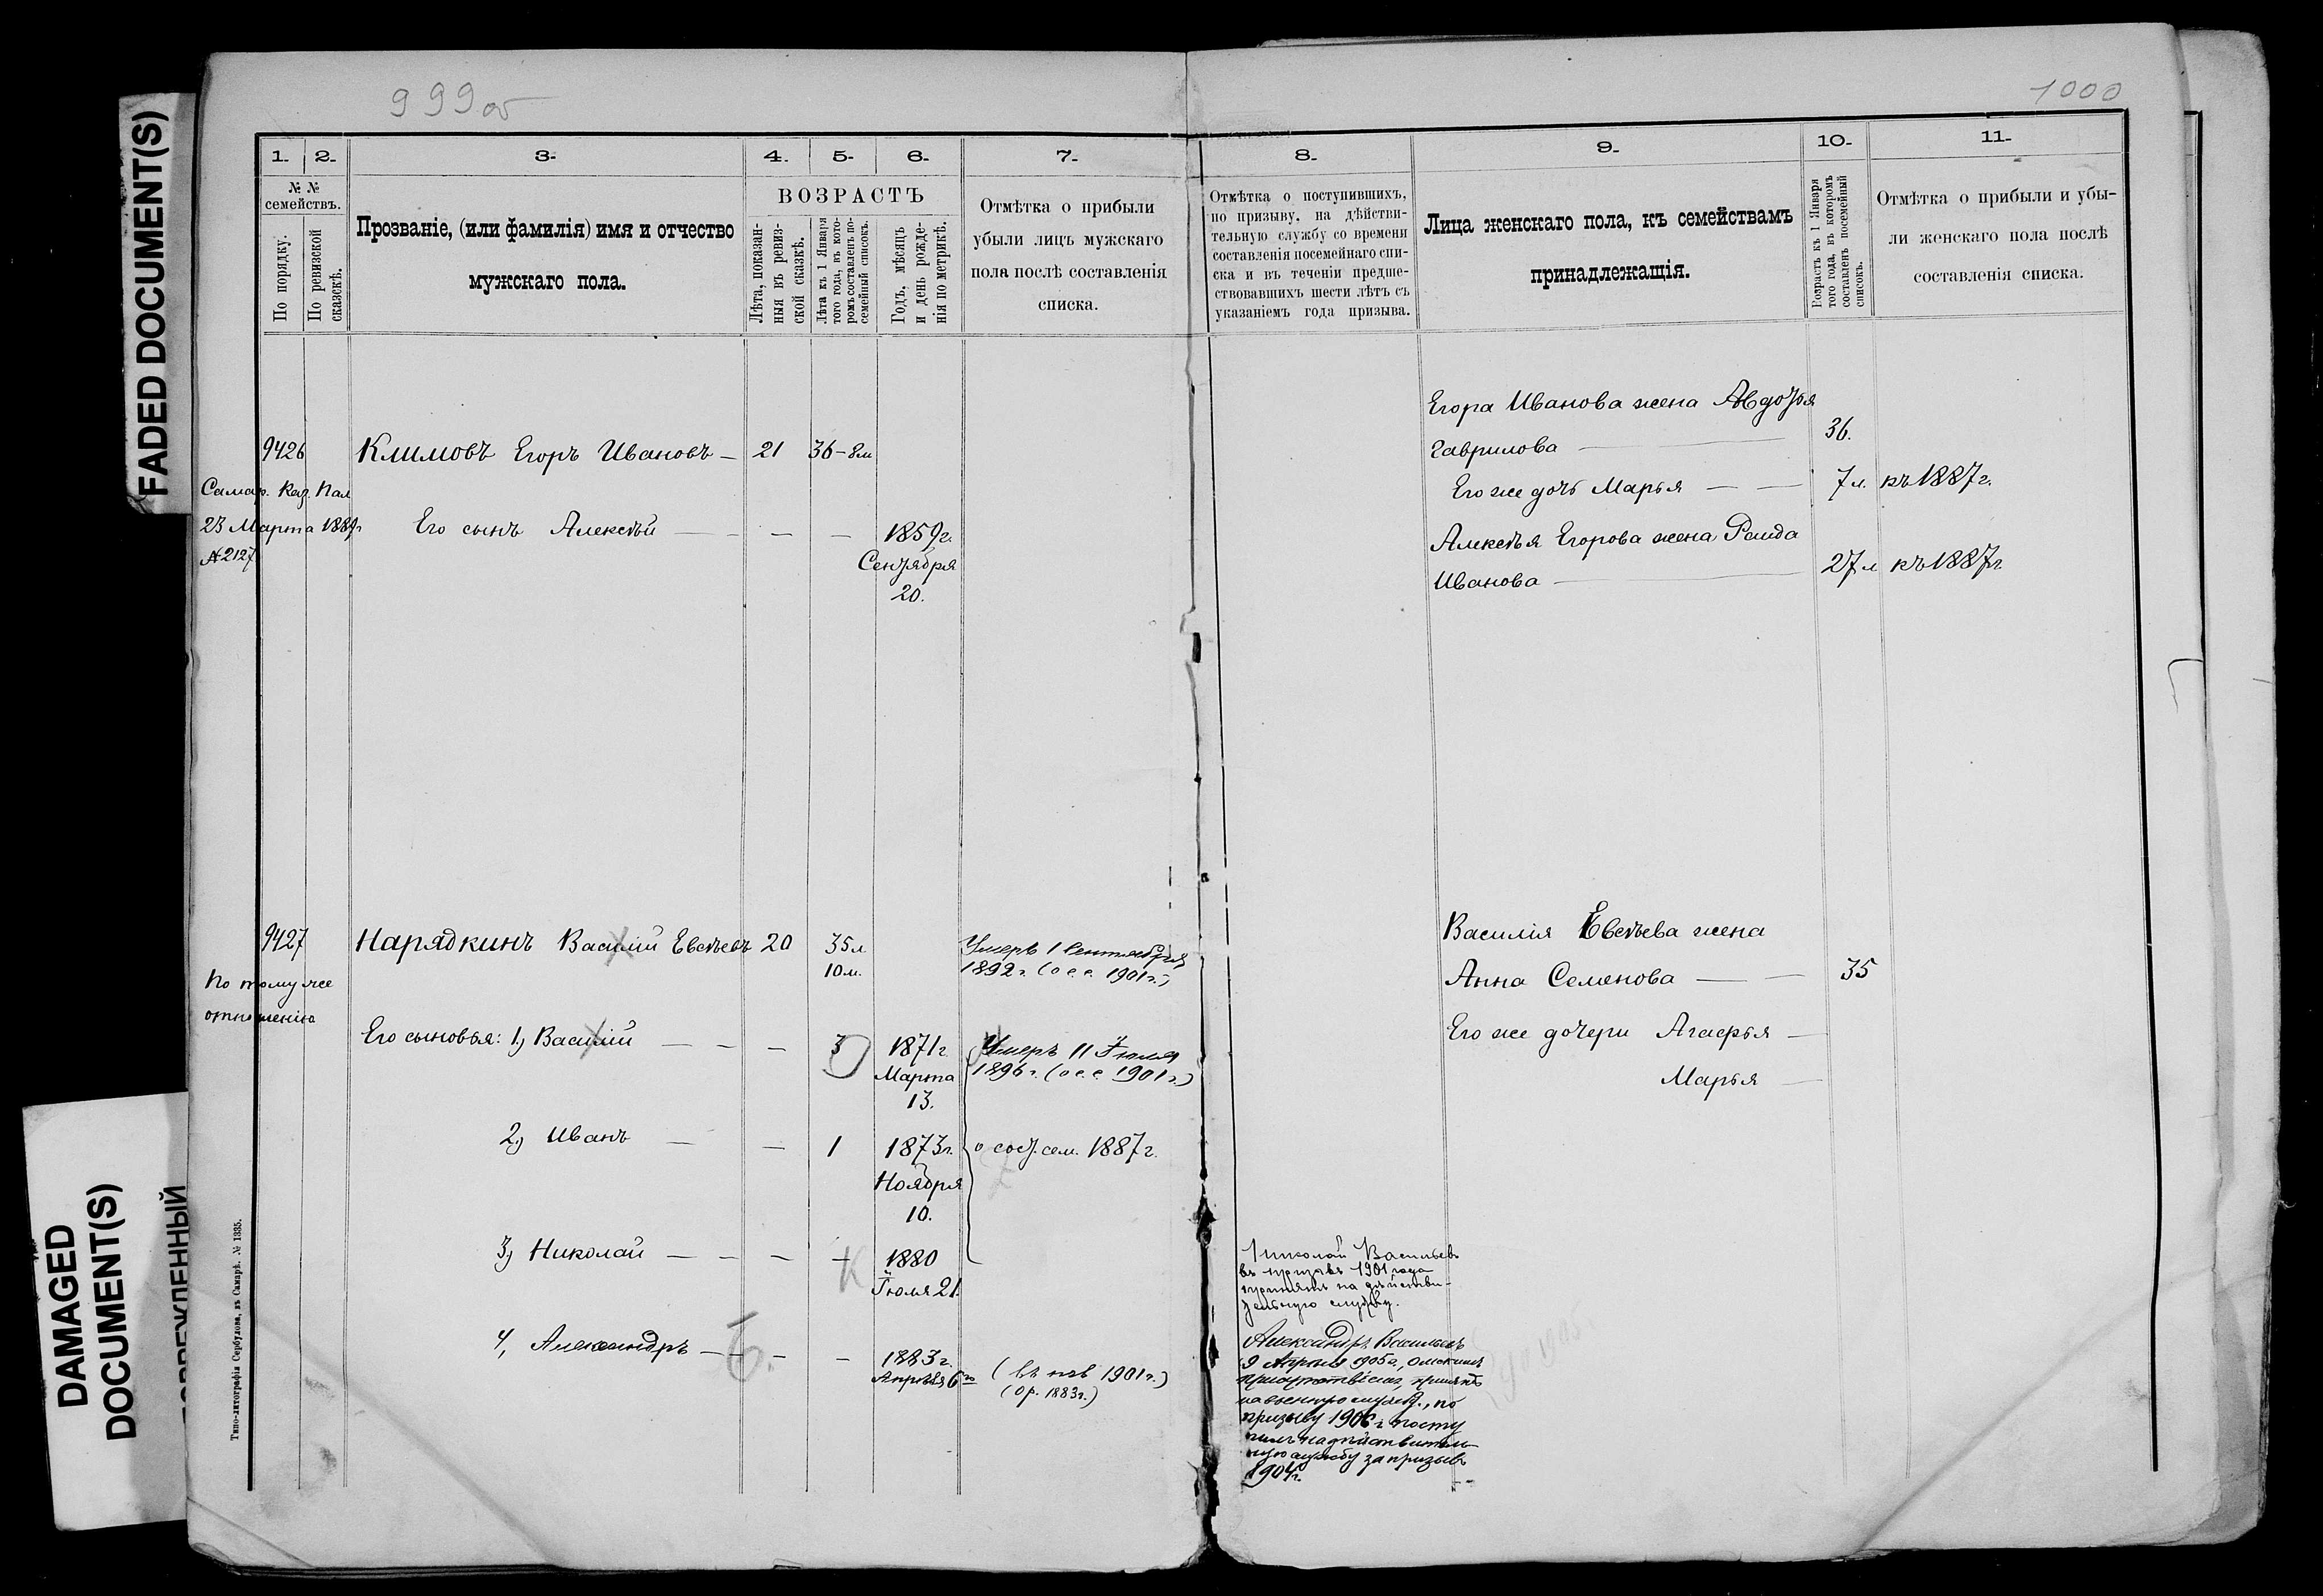 FADED DOCUMENT(S)
DAMAGED
DOCUMENT(S)
999об
1000
1.
2.
3.
4.
5.
6.
7.
№ №
семействъ.
По порядку.
По ревизской
сказскѣ.
Прозваніе, (или фамилія) имя и отчество
мужскаго пола.
ВОЗРАСТЪ
Лѣта, показан-
ныя въ ревиз-
ской сказкѣ.
Лѣта къ 1 Января
того года, въ кото-
ромъ составленъ по-
семейный списокъ.
Годъ, мѣсяцъ
и день рожде-
нія по метрикѣ.
Отмѣтка о прибыли
убыли лицъ мужскаго
пола послѣ составленія
списка.
9426
Климовъ Егоръ Ивановъ —
21
36 - 8м
Самар. Каз. Пал
23 Марта 1889г
№2127
Его сынъ Алексѣй — — — —
1859г.
Сентября
20.
9427
Нарядкинъ Василій Евсѣевъ
20
35л
10м.
Умеръ 1 Сентября
1892г. (о с. с. 1901г.)
По тому же
отношенію
Его сыновья: 1) Василій — — —
3
1871г.
Марта
13.
Умеръ 11 Іюля
1896г. (о с. с. 1901г.)
2) Иванъ — —
1
1873г.
Ноября
10.
о сост. сем. 1887г.
3) Николай — — — —
К
1880
Іюля 21.
4, Александръ — — —
Б.
1883г.
Апрѣля 6го
(въ 1901г.)
(Ор. 1883г.)
Типо-литографія Сербулова, въ Самарѣ. № 1335.
8.
9.
10.
11.
Отмѣтка о поступившихъ,
по призыву, на дѣйстви-
тельную службу со времени
составленія посемейнаго спи-
ска и въ теченіи предше-
ствовавшихъ шести лѣтъ съ
указаніемъ года призыва.
Лица женскаго пола, къ семействамъ
принадлежащія.
Возрастъ къ 1 Января
того года, въ которомъ
составленъ посемейный
списокъ.
Отмѣтка о прибыли и убы-
ли женскаго пола послѣ
составленія списка.
Егора Иванова жена Авдотья
Гаврилова —
36.
Его же дочь Марья — —
7л. къ 1887г.
Алексѣя Егорова жена Раида
Иванова —
27л къ 1887г
Василія Евсѣева жена
Анна Семенова — —
35
Его же дочери Агафья —
Марья —
Николай Васильевъ
въ призывъ 1901 года
принятъ на дѣйстви-
тельную службу.
Александръ Васильевъ
9 Апрѣля 1905г., Омскимъ
присутствіемъ, принятъ
на военную служб., по
призыву 1906г. посту
пилъ на дѣйствитель-
ную службу за призывъ
1904г.